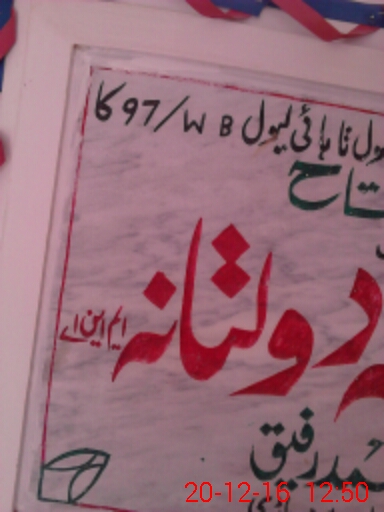 ول تا ہائی لیول 97/W B کا
تاح
دولتانہ
ایم این اے
مد رفیق
20-12-16 12:50